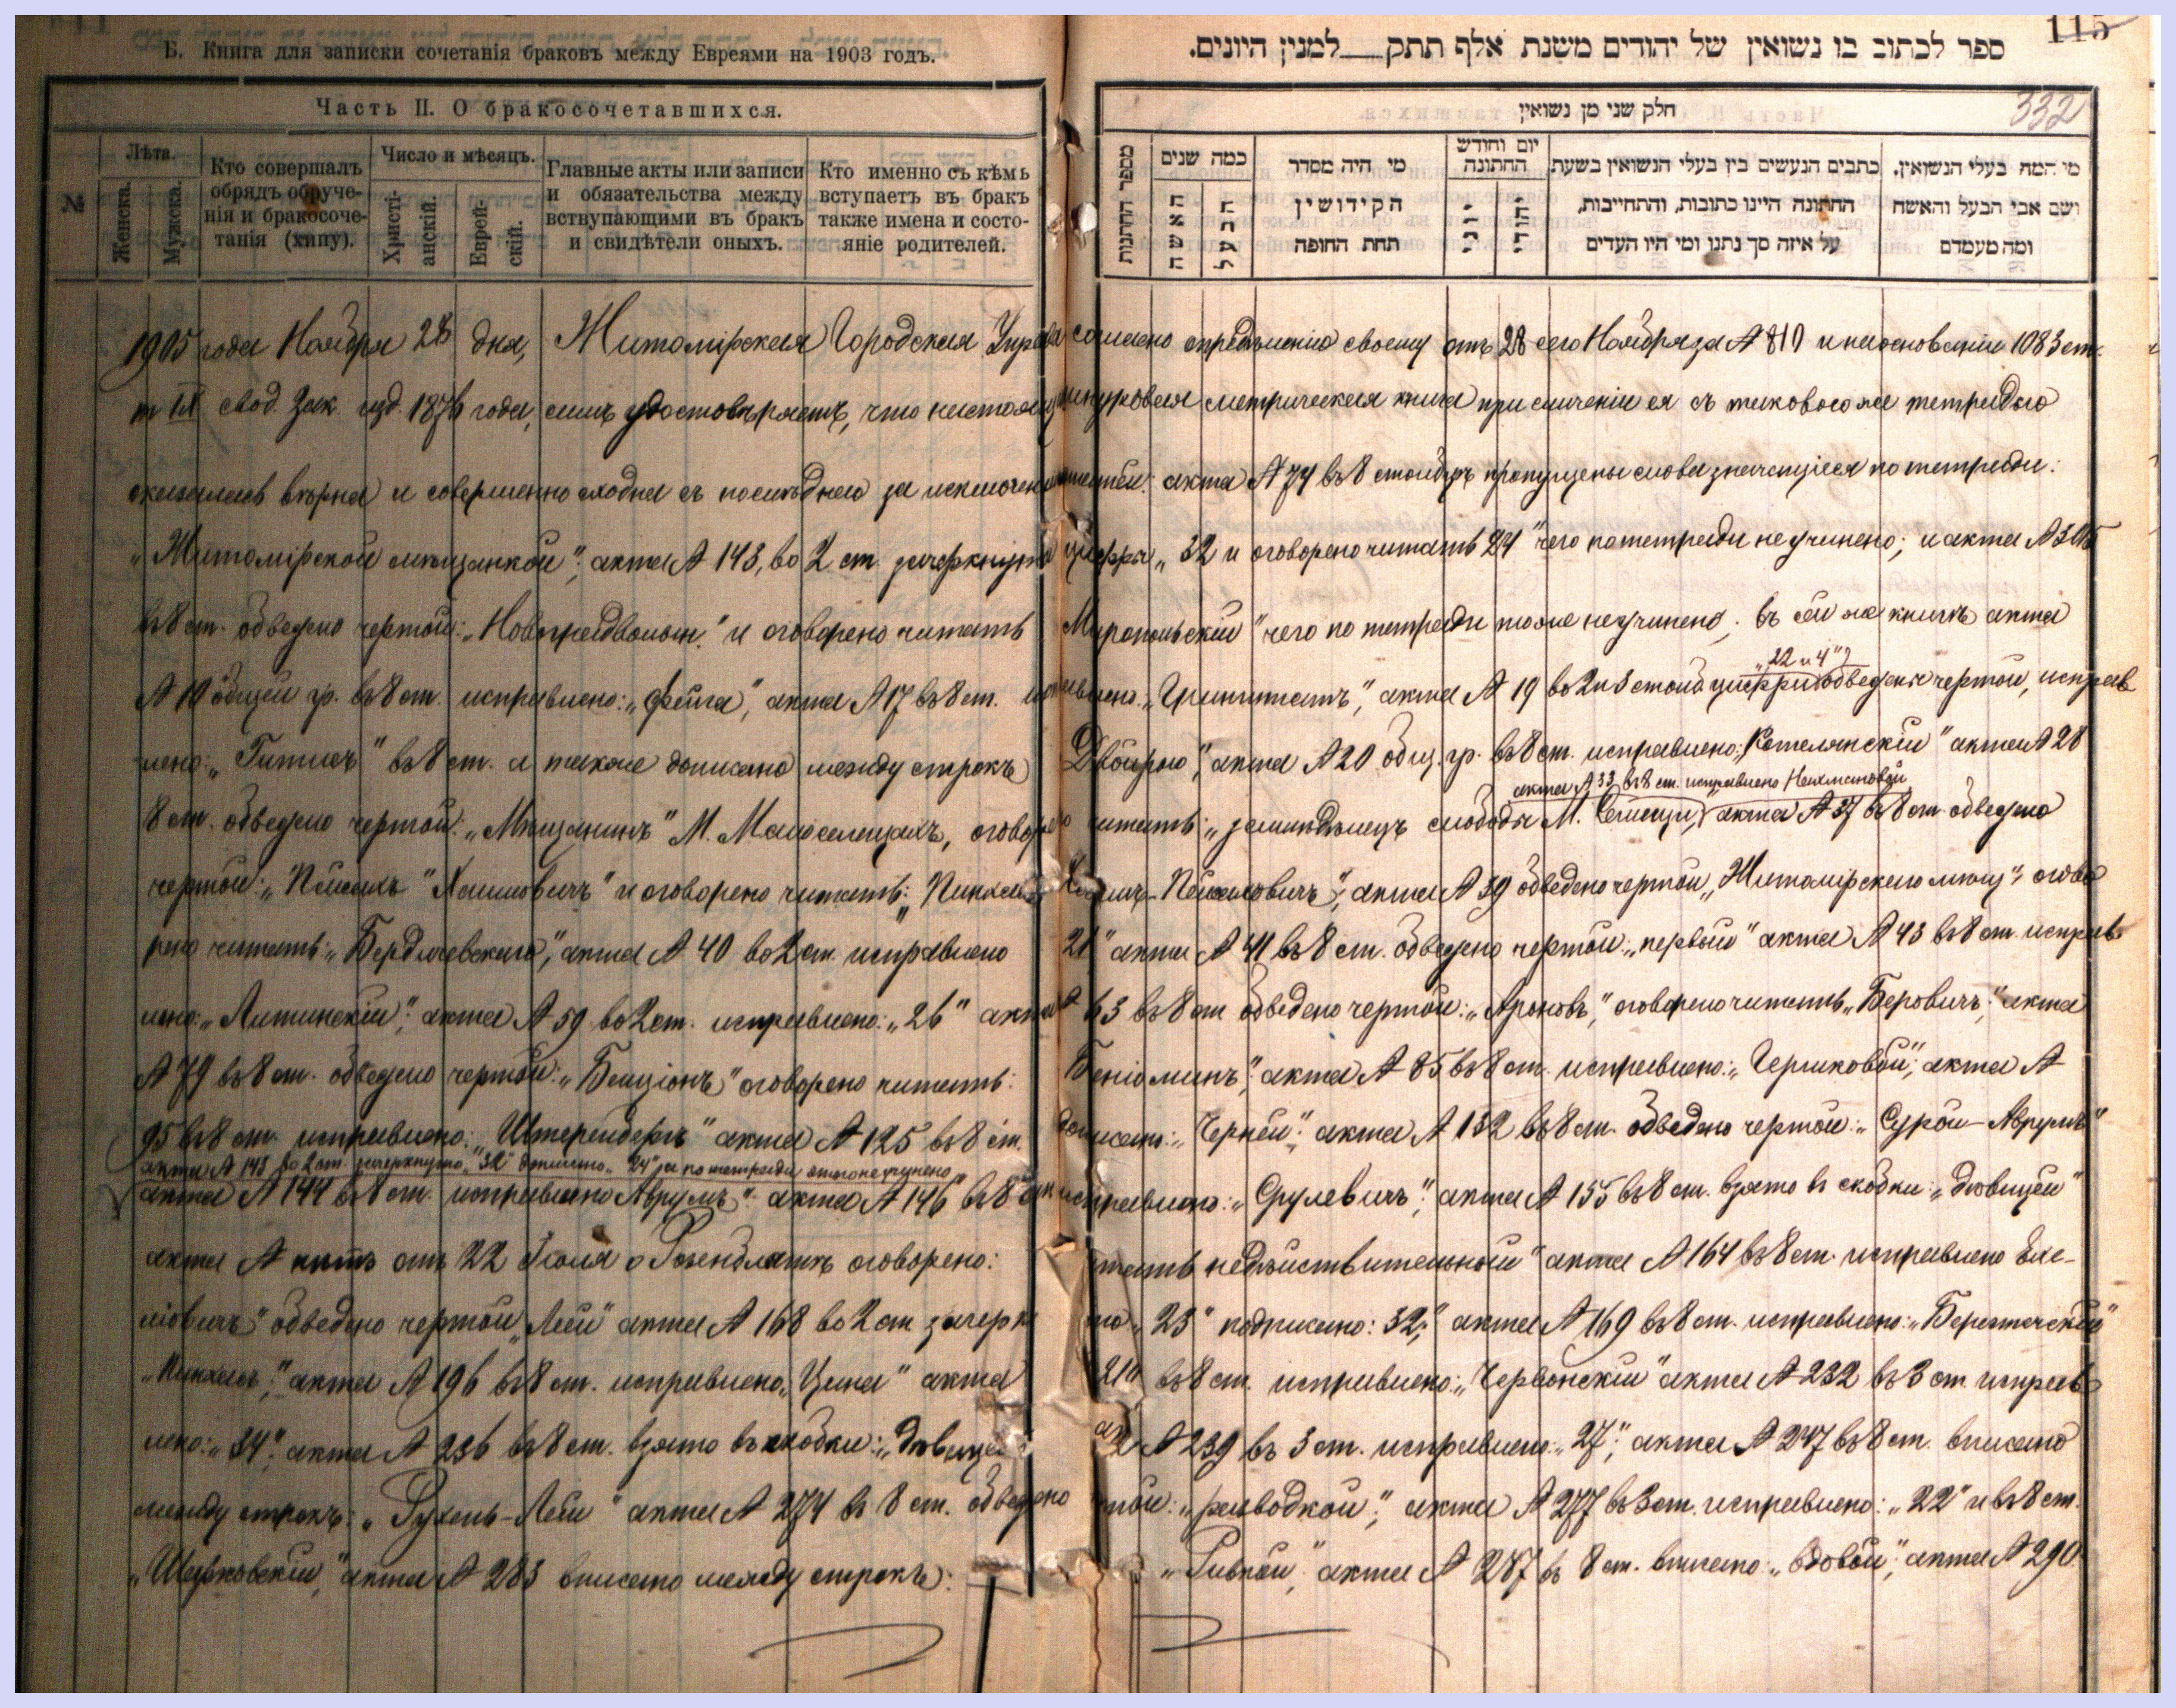 Б. Книга для записки сочетанія браковъ между Евреями на 1903 годъ.
Часть II. О бракосочетавшихся.
№
Лѣта.
Женска.
Мужска.
Кто совершалъ
обрядъ обруче-
нія и бракосоче-
танія (хипу).
Число и мѣсяцъ.
Христі-
анскій.
Еврей-
скій.
Главные акты или записи
и обязательства между
вствупающими въ бракъ
и свидѣтели оныхъ.
Кто именно съ кѣмъ
вступаетъ въ бракъ
также имена и состо-
яніе родителей.
115
ספר לכתוב בו נשואין של יהודים משנת אלף תתק למנין היונים.
חלק שני מן נשואין
332
מספר החתנות
כמה שנים
האשה
הבעל
מי היה מסדר
הקידושין
תחת החופה
יום וחודש
החתונה
יוני
יהודי
כתבים הנעשים בין בעלי הנשואין בשעת
החתונה היינו כתובות, והתחייבות,
על איזה סך נתנו ומי היו העדים
מי המה בעלי הנשואין,
ושם אבי הבעל והאשה
ומה מעמדם
1905 года Ноября 28 дня, Житомірская Городская Управа согласно опредѣленію своему отъ 28 сего Ноября за № 810 и на основаніи 1083 ст.
т IX свод. Зак. изд. 1876 года, симъ удостовѣряетъ, что настоящ шнуровая метрическая книга при сличеніи ея съ таковою же тетрадью
оказалась вѣрна и совершенно сходна съ послѣднею за исключен акта № 74 въ 8 столбцѣ пропущены слова значущіеся по тетради:
„Житомірской мѣщанкой“; акта № 143, во 2 ст. зачеркнута цифры „32 и оговорено читать 24“ чего по тетради не учинено; и акта № 305
въ 8 ст. обведено чертой: и оговорено читать Миропольскій“ чего по тетради тоже не учинено; въ сей же книгѣ акта
„22 и 4“
№ 10 общей гр. въ 8 ст. исправлено: „Фейга“, акта № 17 въ 8 ст. акта № 19 во 2 и 3 столб цифры обведены чертой, исправ
лено: „Гитлеръ“ въ 8 ст. а также дописано между строкъ Двойрою“, акта № 20 общ. гр. въ 8 ст. исправлено: „Котелянскій“ акта № 28
акта № 33 въ 8 ст. исправлено Нахмановой
8 ст. обведено чертой: „Мѣщанинъ“ М. оговорено читать: „земледѣлецъ слободы М. акта № 37 въ 8 ст. обведено
чертой: „Пейсахъ“ „Хаимовичъ“ и оговорено читать: акта № 39 обведено чертой „Житомірскаго мѣщ“, огово
рено читать: „Бердичевскаго“, акта № 40 во 2 ст. исправлено 21“ акта № 41 въ 8 ст. обведено чертой: „первый“ акта № 43 въ 8 ст. исправ
лено: „Литинскій“; акта № 59 во 2 ст. исправлено: „26“ акта № 63 въ 8 ст обведено чертой: „Ароновъ“, оговорено читать „Беровичъ“; акта
№ 79 въ 8 ст. обведено чертой: „Бенціонъ“ оговорено читать: Беніоминъ“, акта № 85 въ 8 ст. исправлено: „Чериковой“; акта №
95 въ 8 ст. исправлено: акта № 125 въ 8 ст. „Черней“; акта № 132 въ 8 ст. обведено чертой: „Сурой-Аврумъ“
акта № 143 во 2 ст. зачеркнуто „32“ дописано „24“ а по тетради этого не учинено
акта № 144 въ 8 ст. исправлено Аврумъ“ акта № 146 въ 8 ст исправлено: „Срулевичъ“; акта № 155 въ 8 ст. взято въ скобки: „дѣвицей“
акта № нѣтъ отъ 22 Іюля о Розенблатъ оговорено: читать недѣйствительный“ акта № 164 въ 8 ст. исправлено
обведено чертой „Леи“ акта № 168 во 2 ст зачерк то „23“ подписано: 32“ акта № 169 въ 8 ст. исправлено:
„Пинхасъ“; акта № 196 въ 8 ст. исправлено „Цина“ акта 210 въ 8 ст. исправлено: „Червонскій“ акта № 232 въ 3 ст исправ
лено: „34“, акта № 236 въ 8 ст. взято въ скобки: „дѣвице № 239 въ 3 ст. исправлено: „27“; акта № 247 въ 8 ст. вписано
между строкъ: „Рухель-Леи“ акта № 274 въ 8 ст. обведено той: „разводкой“; акта № 277 въ 3 ст. исправлено: „22“ и въ 8 ст.
акта № 283 вписано между строкъ: „Ривкой“; акта № 287 въ 8 ст. вписано: „вдовой“; акта № 290